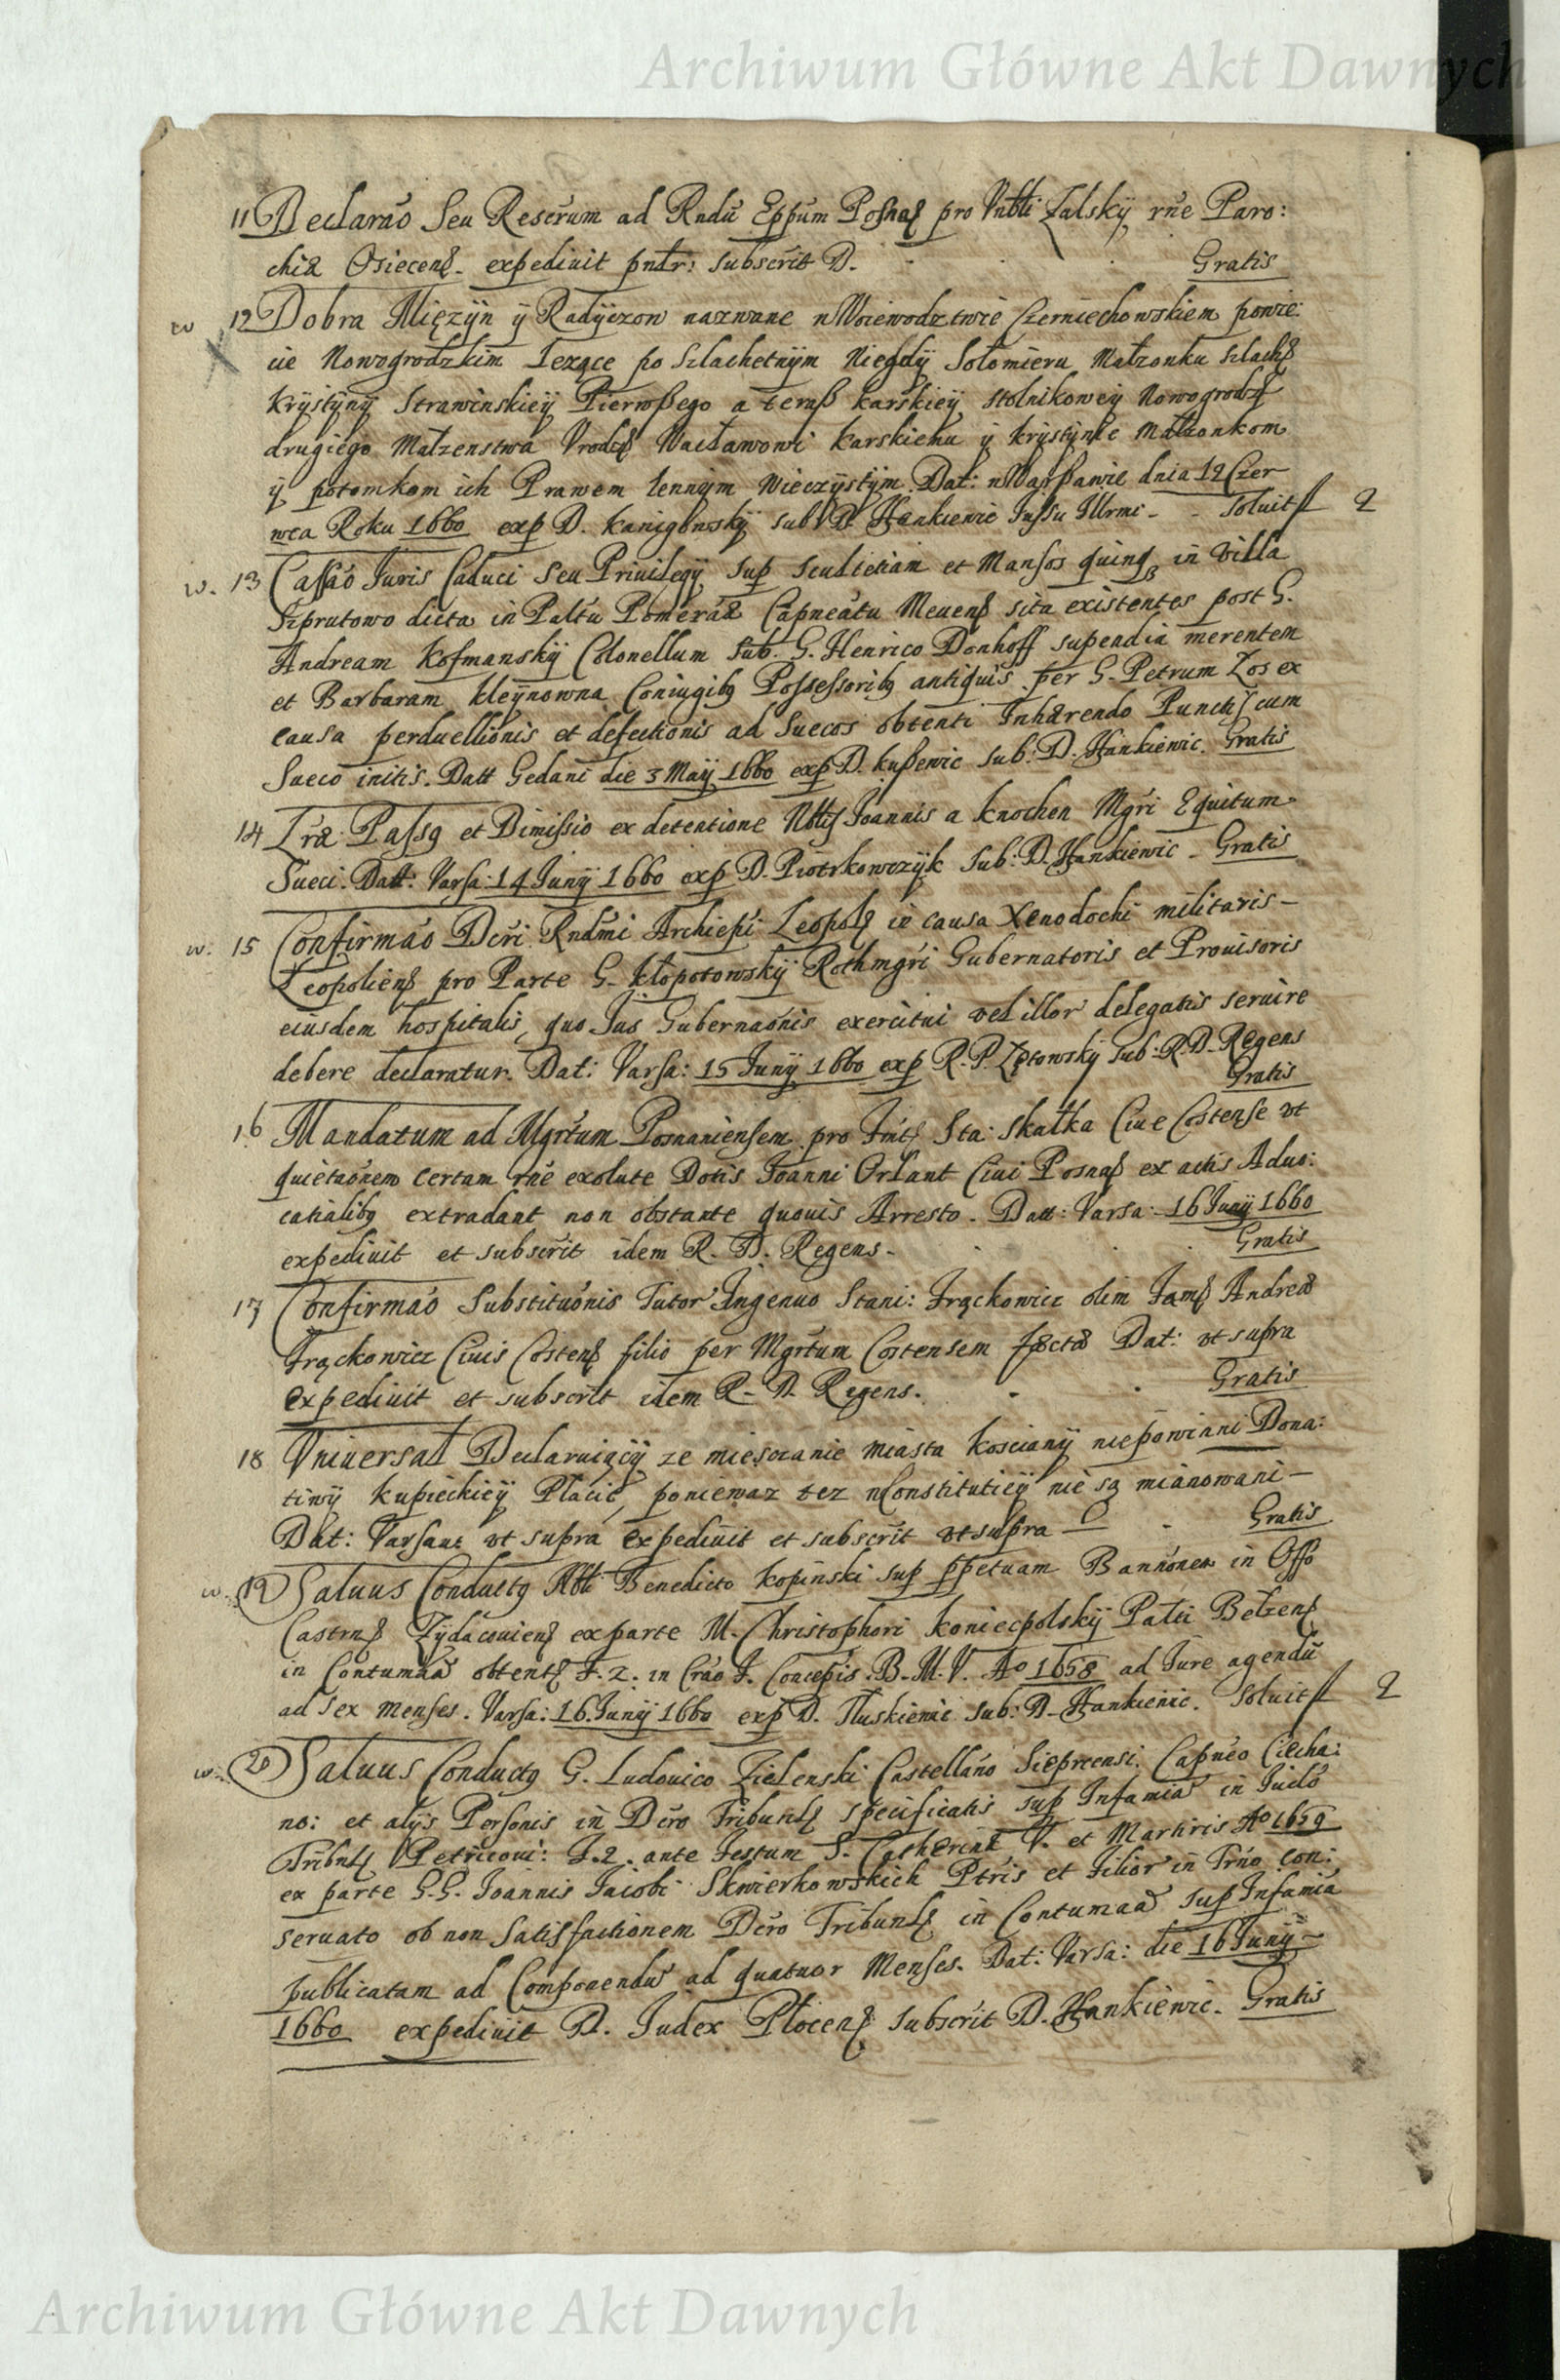 Archiwum Główne Akt Dawnych
11 Declarao Seu Rescrum ad Rndu Eppum Posnas pro Zalskÿ rne Paro:
chiæ Osiecens. expediuit pntr: subscrit D. Gratis
w 12 Dobra Mięzÿn ÿ Radÿczow nazwane w Woiewodztwie Czerniechowskiem powie:
cie Nowogrodzkim Lezące po szlachetnÿm Niegdÿ Sołomieru Małzonku szlach
Krÿstÿnÿ Strawinskieÿ Pierwszego a teraß karskieÿ stolnikoweÿ Nowogrodz
drugiego Małzenstwa Vrodz Wacławowi karskiemu ÿ krÿstÿnie małzonkom
ÿ potomkom ich Prawem lennÿm wieczÿstÿm Dat: w Warßawie dnia 12 Czer
wca Roku 1660 exp D. sub D. Hankiewic Jussu Illrmi - - Soluit fl 2
w. 13 Cassao Juris Caduci Seu Priuilegÿ sup scultetiam et Mansos quinq in villa
Szprutowo dicta in Paltu Pomeraæ Capneatu Meuens sita existentes post G.
Andream Kofmanskÿ Colonellum sub. G. Henrico Donhoff stipendia merentem
et Barbaram kleÿnowna Coniugibq Possessoribq antiquis per G. Petrum Zos ex
causa perduellionis et defectionis ad Suecos obtenti Inhærendo Punctis cum
Sueco initis. Datt Gedani die 3 Maÿ 1660 exp D. kußewic sub: D. Hankiewic. Gratis
14 Lræ Passq et Dimissio ex detentione Nblis Joannis a Knochen Mgri Equitum
Sueci. Datt: Varsa: 14 Junÿ 1660 exp D. Piotrkowczÿk sub: D. Hankiewic - Gratis
w. 15 Confirmao Dcri Rndmi Archiepi Leopols in causa Xenodochi militaris -
Leopoliens pro Parte G. kłopotowskÿ Rothmgri Gubernatoris et Prouisoris
eiusdem hospitalis, quo Jus Gubernaonis exercitui vel illor delegatis seruire
debere declaratur. Dat: Varsa: 15 Junÿ 1660 exp R. P. sub: R. D. Regens
Gratis
16 Mandatum ad Mgrtum Posnaniensem pro Sta: Skałka Ciue Costense vt
quietaonem certam rne exolute Dotis Joanni Orlant Ciui Posnas ex actis Aduo:
catialibq extradant non obstante quouis Arresto. Datt: Varsa: 16 Junÿ 1660
expediuit et subscrit idem R. D. Regens. Gratis
17 Confirmao Substituonis Tutor Ingenuo Stani: Frąckowicz olim Andreæ
Frąckowicz Ciuis Costens filio per Mgrtum Costensem factæ Dat: vt supra
Expediuit et subscrit idem R. D. Regens. Gratis
18 Vniuersał Declaruiącÿ ze miesczanie miasta koscianÿ niepowinni Dona:
tiwÿ kupieckieÿ Płacić, poniewaz tez w Constituticÿ nie są mianowani -
Dat: Varsaue vt supra Expediuit et subscrit vt supra - Gratis
w. 19 Saluus Conductq Nbli Benedicto Kopinski sup ppetuam Bannonem in Offo
Castrns Zÿdacouiens ex parte M. Christophori koniecpolskÿ Palti Bełzens
in Contumaa obtents F. 2. in Crao F. Concepis. B. M. V. Ao 1658 ad Jure agendu
ad sex menses. Varsa: 16 Junÿ 1660 exp D. sub: D. Hankiewic. Soluit fl 2
w. 20 Saluus Conductq G. Ludouico Zielenski Castellano Sieprcensi. Capneo Ciecha:
no: et alÿs Personis in Dcro Tribunls specificatis sup Infamia in Juido
Tribnls Petricoui: F. 2. ante Festum S. Catherinæ V. et Martiris Ao 1659
ex parte G. G. Joannis Jaiobi Skwierkowskich Ptris et Filior in Trno con:
seruato ob non satisfactionem Dcro Tribunls in Contumaa sup Infamia
publicatam ad Componendu ad quatuor Menses. Dat: Varsa: die 16 Junÿ -
1660 expediuit D. Judex Płocens subscrit D. Hankiewic. Gratis
Archiwum Główne Akt Dawnych